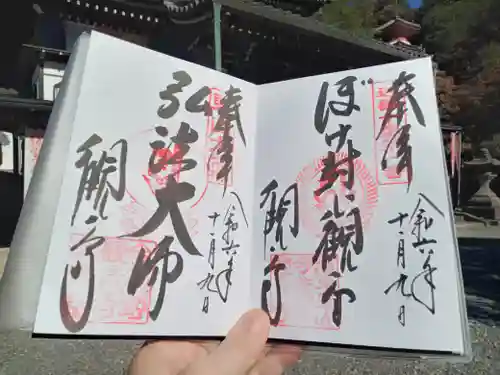 奉拝
ぼけ封じ観音
観心寺
令和六年
十一月九日
奉拝
弘法大師
観心寺
令和六年
十一月九日